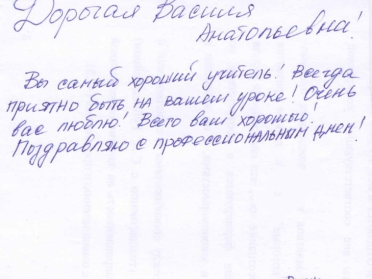 Дорогая Василя
Анатольевна!
Вы самый хороший учитель! Всегда
приятно быть на вашем уроке! Очень
вас люблю! Всего вам хорошого!
Поздравляю с профессиональным днем!